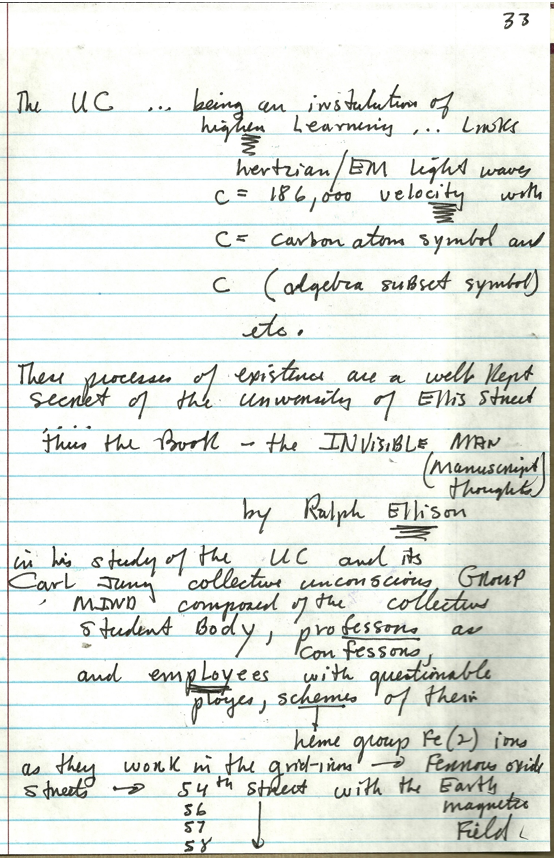 33
The UC ... being an institution of
higher Learning ... Links
hertzian/EM light waves
C = 186,000 velocity with
C = carbon atom symbol and
C (algebra subset symbol)
etc.
These processes of existence are a well kept
secret of the university of Ellis Street
thus the Book – the INVISIBLE MAN
(Manuscript
thoughts)
by Ralph Ellison
in his study of the UC and its
Carl Jung collective unconscious, GROUP
MIND composed of the collective
student Body, professons as
confessons,
and employees with questionable
ployes, schemes of their
heme group Fe(2) ions
as they work in the grid-irons → Ferrous oxide
streets → 54th street with the Earth
56 magnetic
57 Field
58